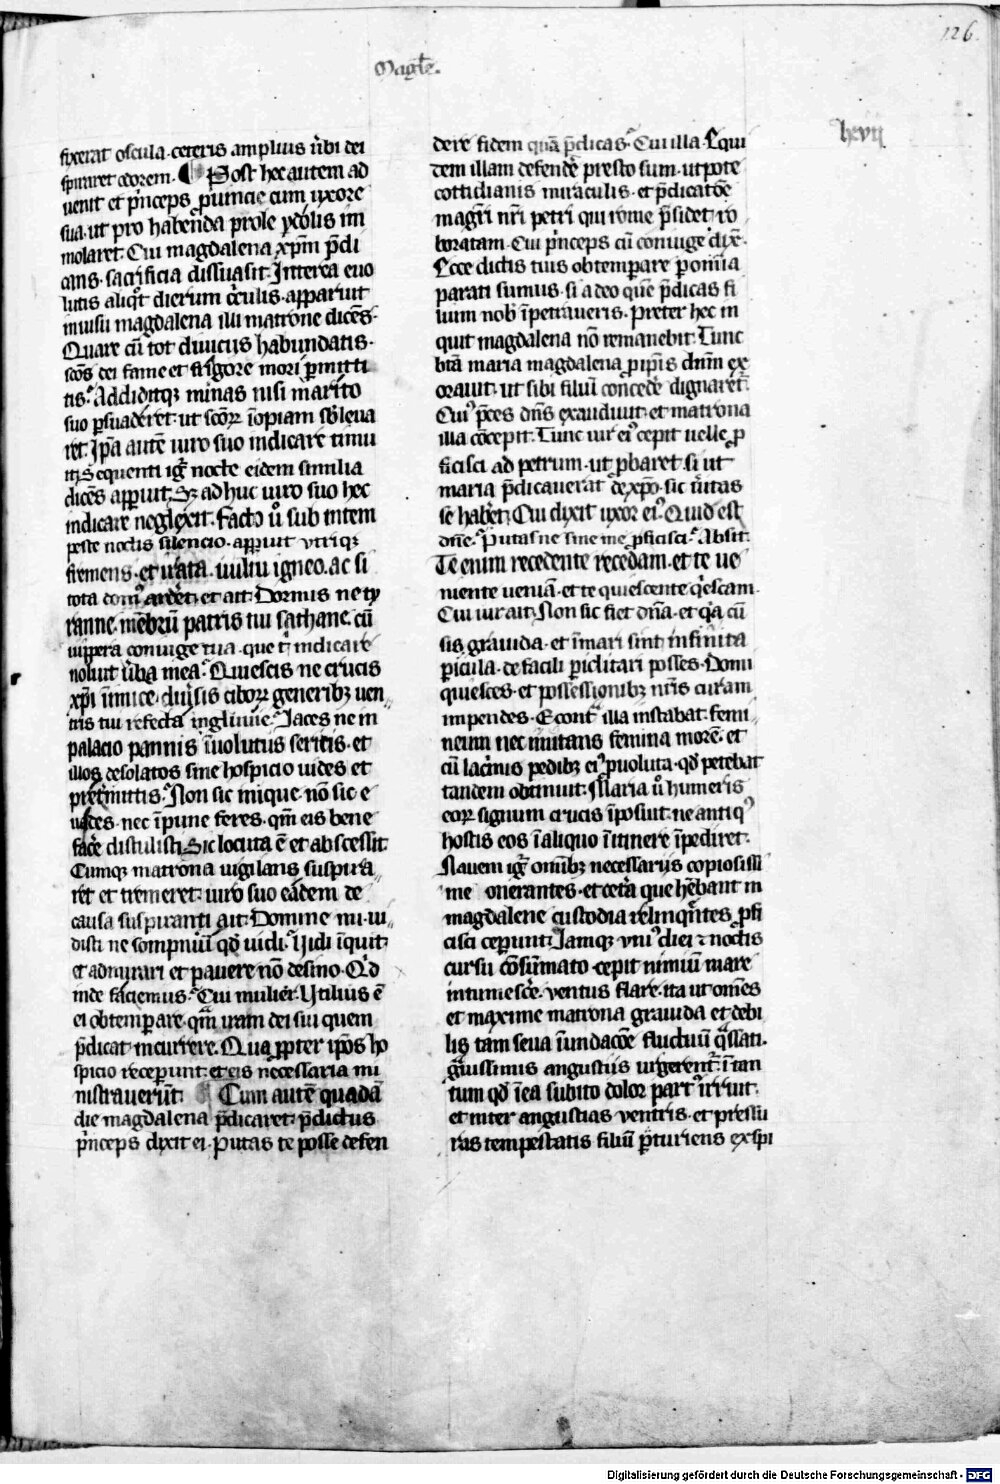 126.
Magdale.
lxvij
fixerat oscula. ceteris amplius v̉bi dei
spiraret odorem. ¶ Post hec autem ad
uenit et p̉nceps ꝓuincie cum uxore
sua. ut pro habenda prole ydolis im
molaret. Cui magdalena xp̄m p̄di
cans. sacrificia dissuasit. Interea euo
lutis aliq̉t dierum c̉culis. apparuit
inuisu magdalena illi matrone dicēs.
Quare cū tot diuicijs habundatis.
scōs dei fame et frigore mori ꝑmitti
tis. Addiditqꝫ minas nisi marito
suo ꝑsuaderet. ut scōꝝ īopiam sb̉leua
ret. Ip̄a autē uiro suo indicare timu
it. Sequenti igr̄ nocte eidem similia
dicēs aꝑuit. Sꝫ adhuc uiro suo hec
indicare neglexit. Facto ủ sub intem
peste noctis silencio. aꝑuit vtriqꝫ
fremens. et irata. uultu igneo. ac si
tota dom᷒ arder̉t. et ait. Dormis ne ty
ranne. mēbrū patris tui sathane. cū
uipera coniuge tua. que t̉ indicare
noluit v̉ba mea. Quiescis ne crucis
xp̄i īmice. diủsis ciboꝝ generibꝫ uen
tris tui refecta ingluuie. Iaces ne in
palacio pannis īuolutus sericis. et
illos desolatos sine hospicio uides et
pret̉mittis. Non sic inique. nō sic e
uades. nec īpune feres. qm̄ eis bene
facer̉ distulisti. Sic locuta ē et abscessit.
Cumqꝫ matrona uigilans suspira
ret et tremeret. uiro suo eādem de
causa suspiranti ait. Domine mi. ui
disti ne sompniū qd̉ uidi. Uidi īquit.
et admirari et pauere nō desino. Q̉d
inde faciemus. Cui mulier. Utilius ē
ei obtemꝑare. qm̄ iram dei sui quem
p̄dicat incurrere. Qua ꝓpter ip̄os ho
spicio receꝑunt. et eis necessaria mi
nistrauerūt. Cum autē quadā
die magdalena p̄dicaret. p̄dictus
p̉nceps dixit ei. Putas te posse defen
dere fidem quā p̄dicas. Cui illa. Equi
dem illam defender̉ presto sum. utpote
cottidianis miraculis. et p̄dicatōe
magr̄i nr̄i petri qui rome p̄sidet. ro
boratam. Cui p̉nceps cū coniuge dix̄.
Ecce dictis tuis obtemꝑare ꝑ omīa
parati sumus. si a deo quē p̄dicas fi
lium nob̉ īpetraueris. Preter hec in
quit magdalena nō remanebit. Tunc
btā maria magdalena ꝓ ip̄is dn̄m ex
orauit. ut sibi filiū conceder̉ dignaret̉.
Cui᷒ p̄ces dn̄s exaudiuit. et matrona
illa cōcepit. Tunc uir ei᷒ cepit uelle ꝓ
ficisci ad petrum. ut ꝓbaret. si ut
maria p̄dicauerat de xp̄o. sic v̉itas
se haber̉t. Cui dixit uxor ei᷒. Quid est
dn̄e. Putas ne sine me ꝓficisci. Absit.
Te enim recedente recedam. et te ue
niente ueniā. et te quiescente q̉escam.
Cui uir ait. Non sic fiet dn̄a. et q̉a cū
sis grauida. et ī mari sint infinita
ꝑicula. de facili ꝑiclitari posses. Domi
quiesces. et possessionibꝫ nr̄is curam
impendes. Econt̉ illa instabat. femi
neum nec mutans femina morē. et
cū lac̉mis pedibꝫ ei᷒ ꝓuoluta. qd̉ petebat
tandem obtinuit. Maria ủ humeris
eoꝝ signum crucis īposuit. ne antiq᷒
hostis eos ī aliquo ītinere īpediret.
Nauem igr̄ omībꝫ necessarijs copiosissi
me onerantes. et cet̉a que hēbant in
magdalene custodia relinq̉ntes. ꝓfi
cisci ceperunt. Iamqꝫ vni᷒ diei ⁊ noctis
cursu cōsūmato. cepit nimiū mare
intumescer̉. ventus flare. ita ut omēs
et maxime matrona grauida et debi
lis tam seua īundacōe fluctuū q̉ssati.
g̉uissimis angustijs urgerent̉. ī tan
tum qd̉ ī ea subito dolor part᷒ irruit.
et inter angustias ventris. et pressu
ras tempestatis filiū ꝑturiens exspi
Digitalisierung gefördert durch die Deutsche Forschungsgemeinschaft - DFG